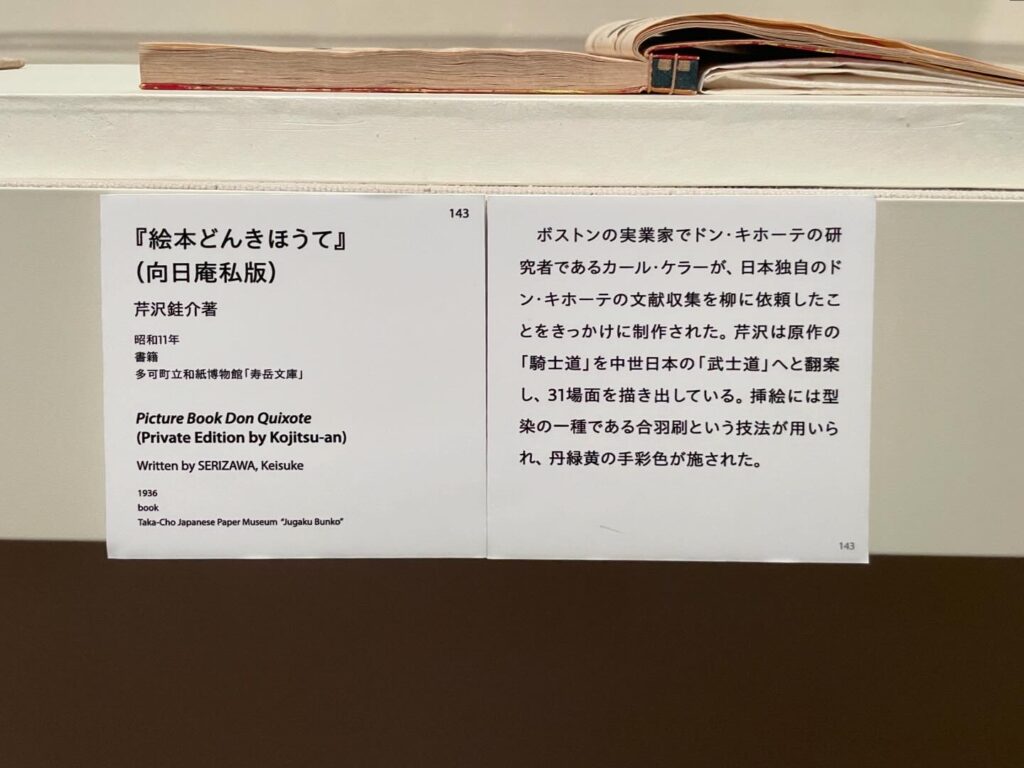 143
『絵本どんきほうて』
(向日庵私版)
芹沢銈介著
昭和11年
書籍
多可町立和紙博物館「寿岳文庫」
Picture Book Don Quixote
(Private Edition by Kojitsu-an)
Written by SERIZAWA, Keisuke
1936
book
Taka-Cho Japanese Paper Museum “Jugaku Bunko”
ボストンの実業家でドン・キホーテの研
究者であるカール・ケラーが、日本独自のド
ン・キホーテの文献収集を柳に依頼したこ
とをきっかけに制作された。芹沢は原作の
「騎士道」を中世日本の「武士道」へと翻案
し、31場面を描き出している。挿絵には型
染の一種である合羽刷という技法が用いら
れ、丹緑黄の手彩色が施された。
143